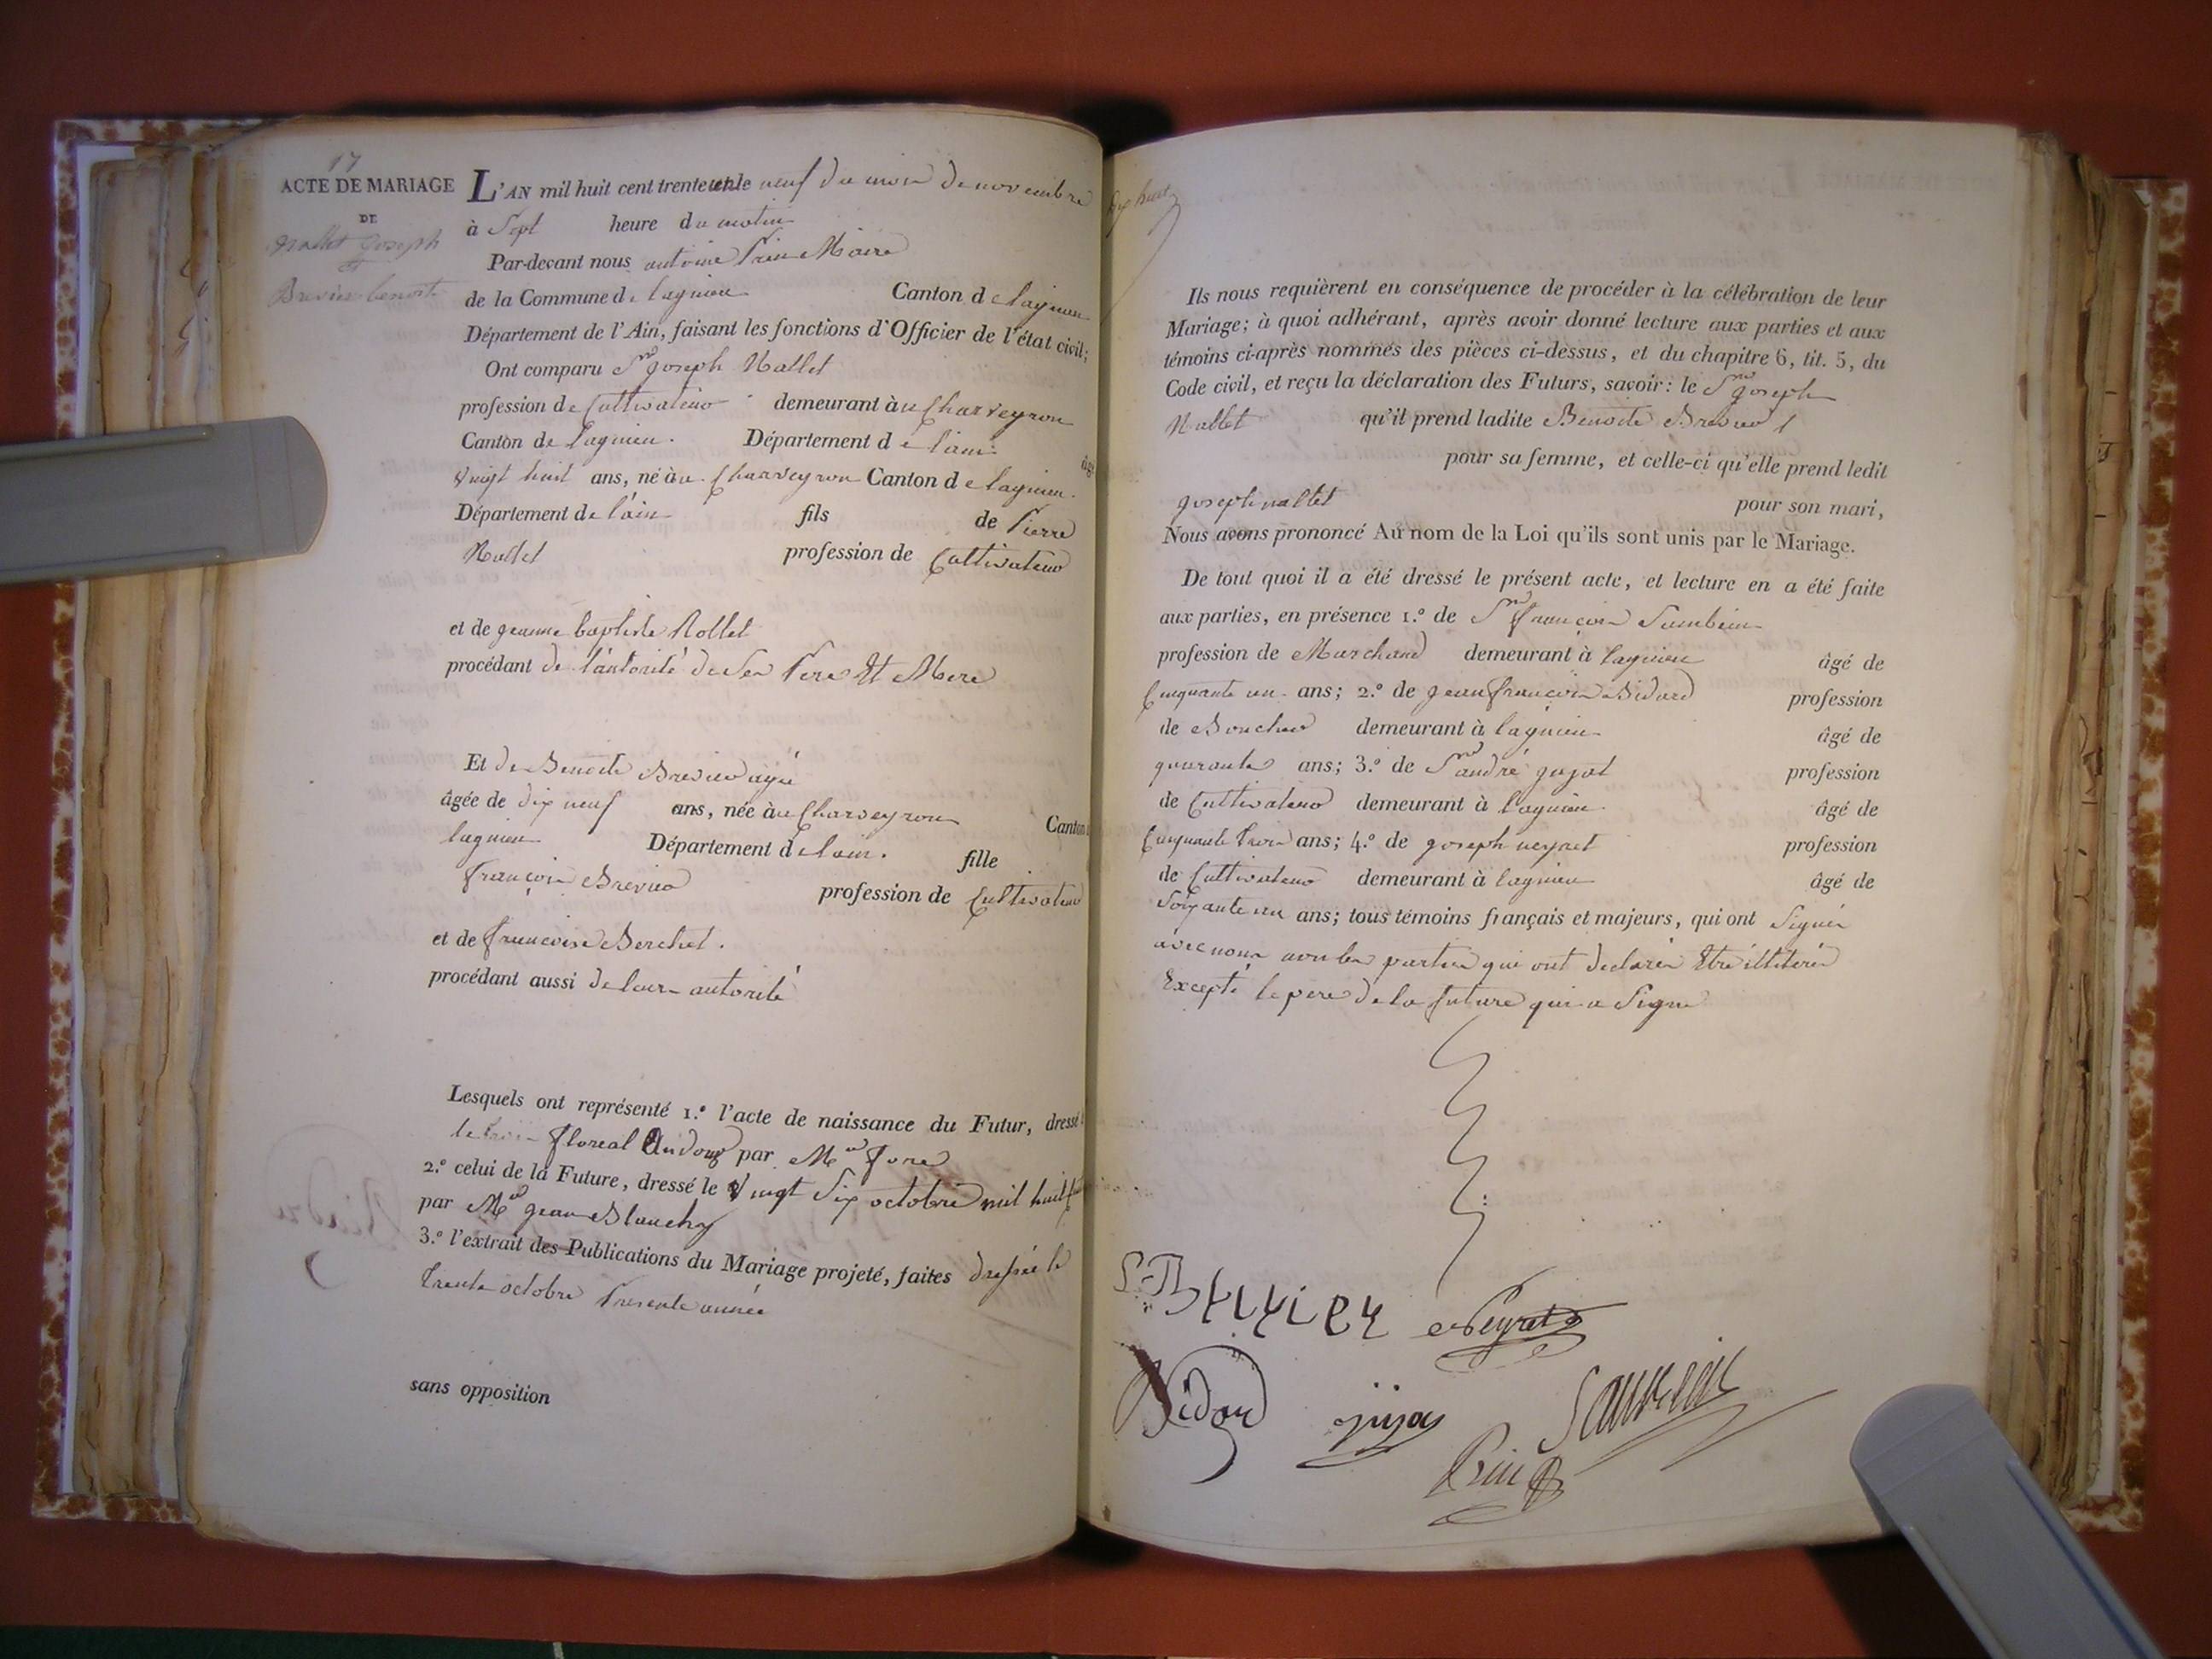 17
ACTE DE MARIAGE
DE
Nallet Joseph
et
Brevier benoite
L'AN mil huit cent trente le neuf du mois de novembre
à Sept heure du matin
Par-devant nous antoine Prin Maire
de la Commune de lagnieu Canton de lagnieu
Département de l'Ain, faisant les fonctions d'Officier de l'état civil;
Ont comparu Sr joseph Nallet
profession de Cultivateur demeurant àu Charveyron
Canton de Lagnieu. Département de lain. âgé
Vingt huit ans, né àu Charveyron Canton de lagnieu.
Département de l'ain fils de Pierre
Nallet profession de Cultivateur
et de jeanne baptiste Nollet
procédant de l'autorité de Ses Pere Et Mere
Et de Benoite Brevier
âgée de dix neuf ans, née àu Charveyron Canton
lagnieu Département de lain. fille
françois Brevier profession de Cultivateur
et de francoise Berchet.
procédant aussi de leur autorité
Lesquels ont représenté 1.° l'acte de naissance du Futur, dressé
le trois floreal an douz par Mr
2.° celui de la Future, dressé le Vingt Six octobre mil huit
par Mr jean Blanchy
3.° l'extrait des Publications du Mariage projeté, faites dressée le
trente octobre Presente année
sans opposition
dix huit
Ils nous requièrent en conséquence de procéder à la célébration de leur
Mariage; à quoi adhérant, après avoir donné lecture aux parties et aux
témoins ci-après nommés des pièces ci-dessus, et du chapitre 6, tit. 5, du
Code civil, et reçu la déclaration des Futurs, savoir: le Sr joseph
Nallet qu'il prend ladite Benoite Brevier
pour sa femme, et celle-ci qu'elle prend ledit
joseph nallet pour son mari,
Nous avons prononcé Au nom de la Loi qu'ils sont unis par le Mariage.
De tout quoi il a été dressé le présent acte, et lecture en a été faite
aux parties, en présence 1.° de Sr françois
profession de Marchand demeurant à lagnieu âgé de
Cinquante un ans; 2.° de jean françois Bidard profession
de Boucher demeurant à lagnieu âgé de
quarante ans; 3.° de Sr andré jujat profession
de Cultivateur demeurant à Lagnieu âgé de
Cinquante trois ans; 4.° de joseph neyret profession
de Cultivateur demeurant à lagnieu âgé de
Soixante un ans; tous témoins français et majeurs, qui ont Signés
avec nous non les parties qui ont declarés Etre illiterés
Excepté le pere de la future qui a Signé
Brivier Neyret
Bidard jujat
Prin